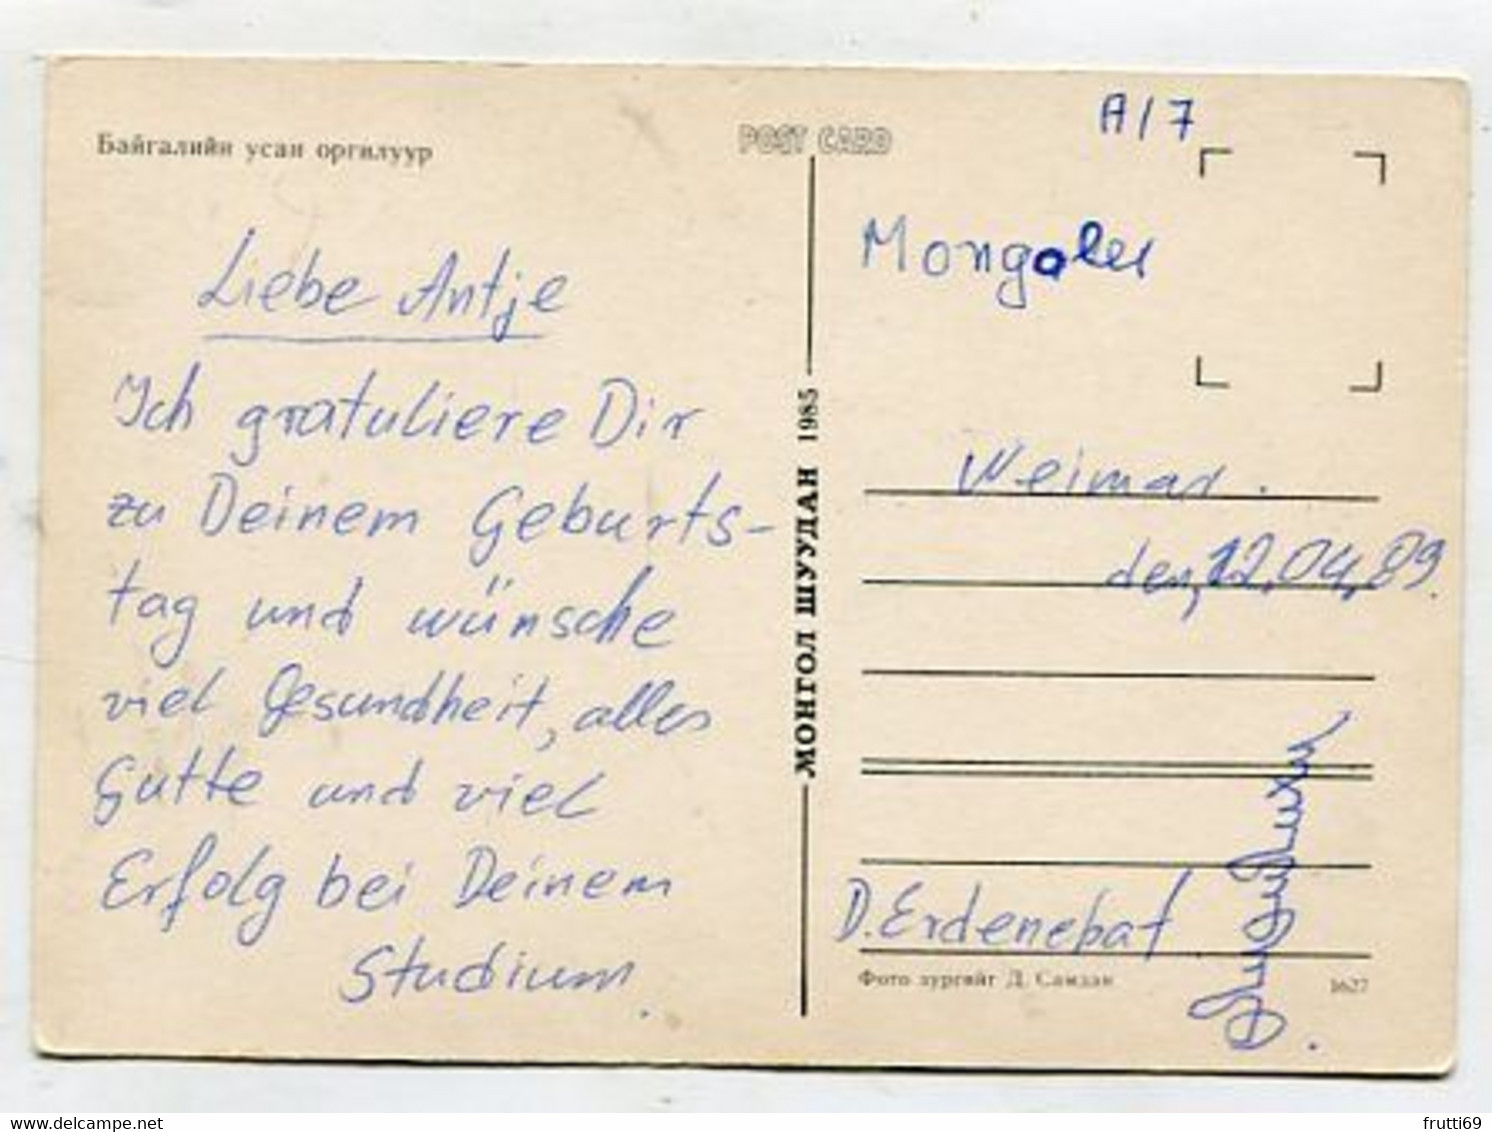 Байгалийн усан оргилуур
POST CARD
A/7
Liebe Antje
Ich gratuliere Dir
zu Deinem Geburts-
tag und wünsche
viel Gesundheit, alles
Gutte und viel
Erfolg bei Deinem
Studium.
МОНГОЛ ШУУДАН 1985
Mongolei
Weimar.
den, 12.04.89.
D. Erdenebat
Фото зургийг Д. Самдан
1627
delcampe.net
frutti69